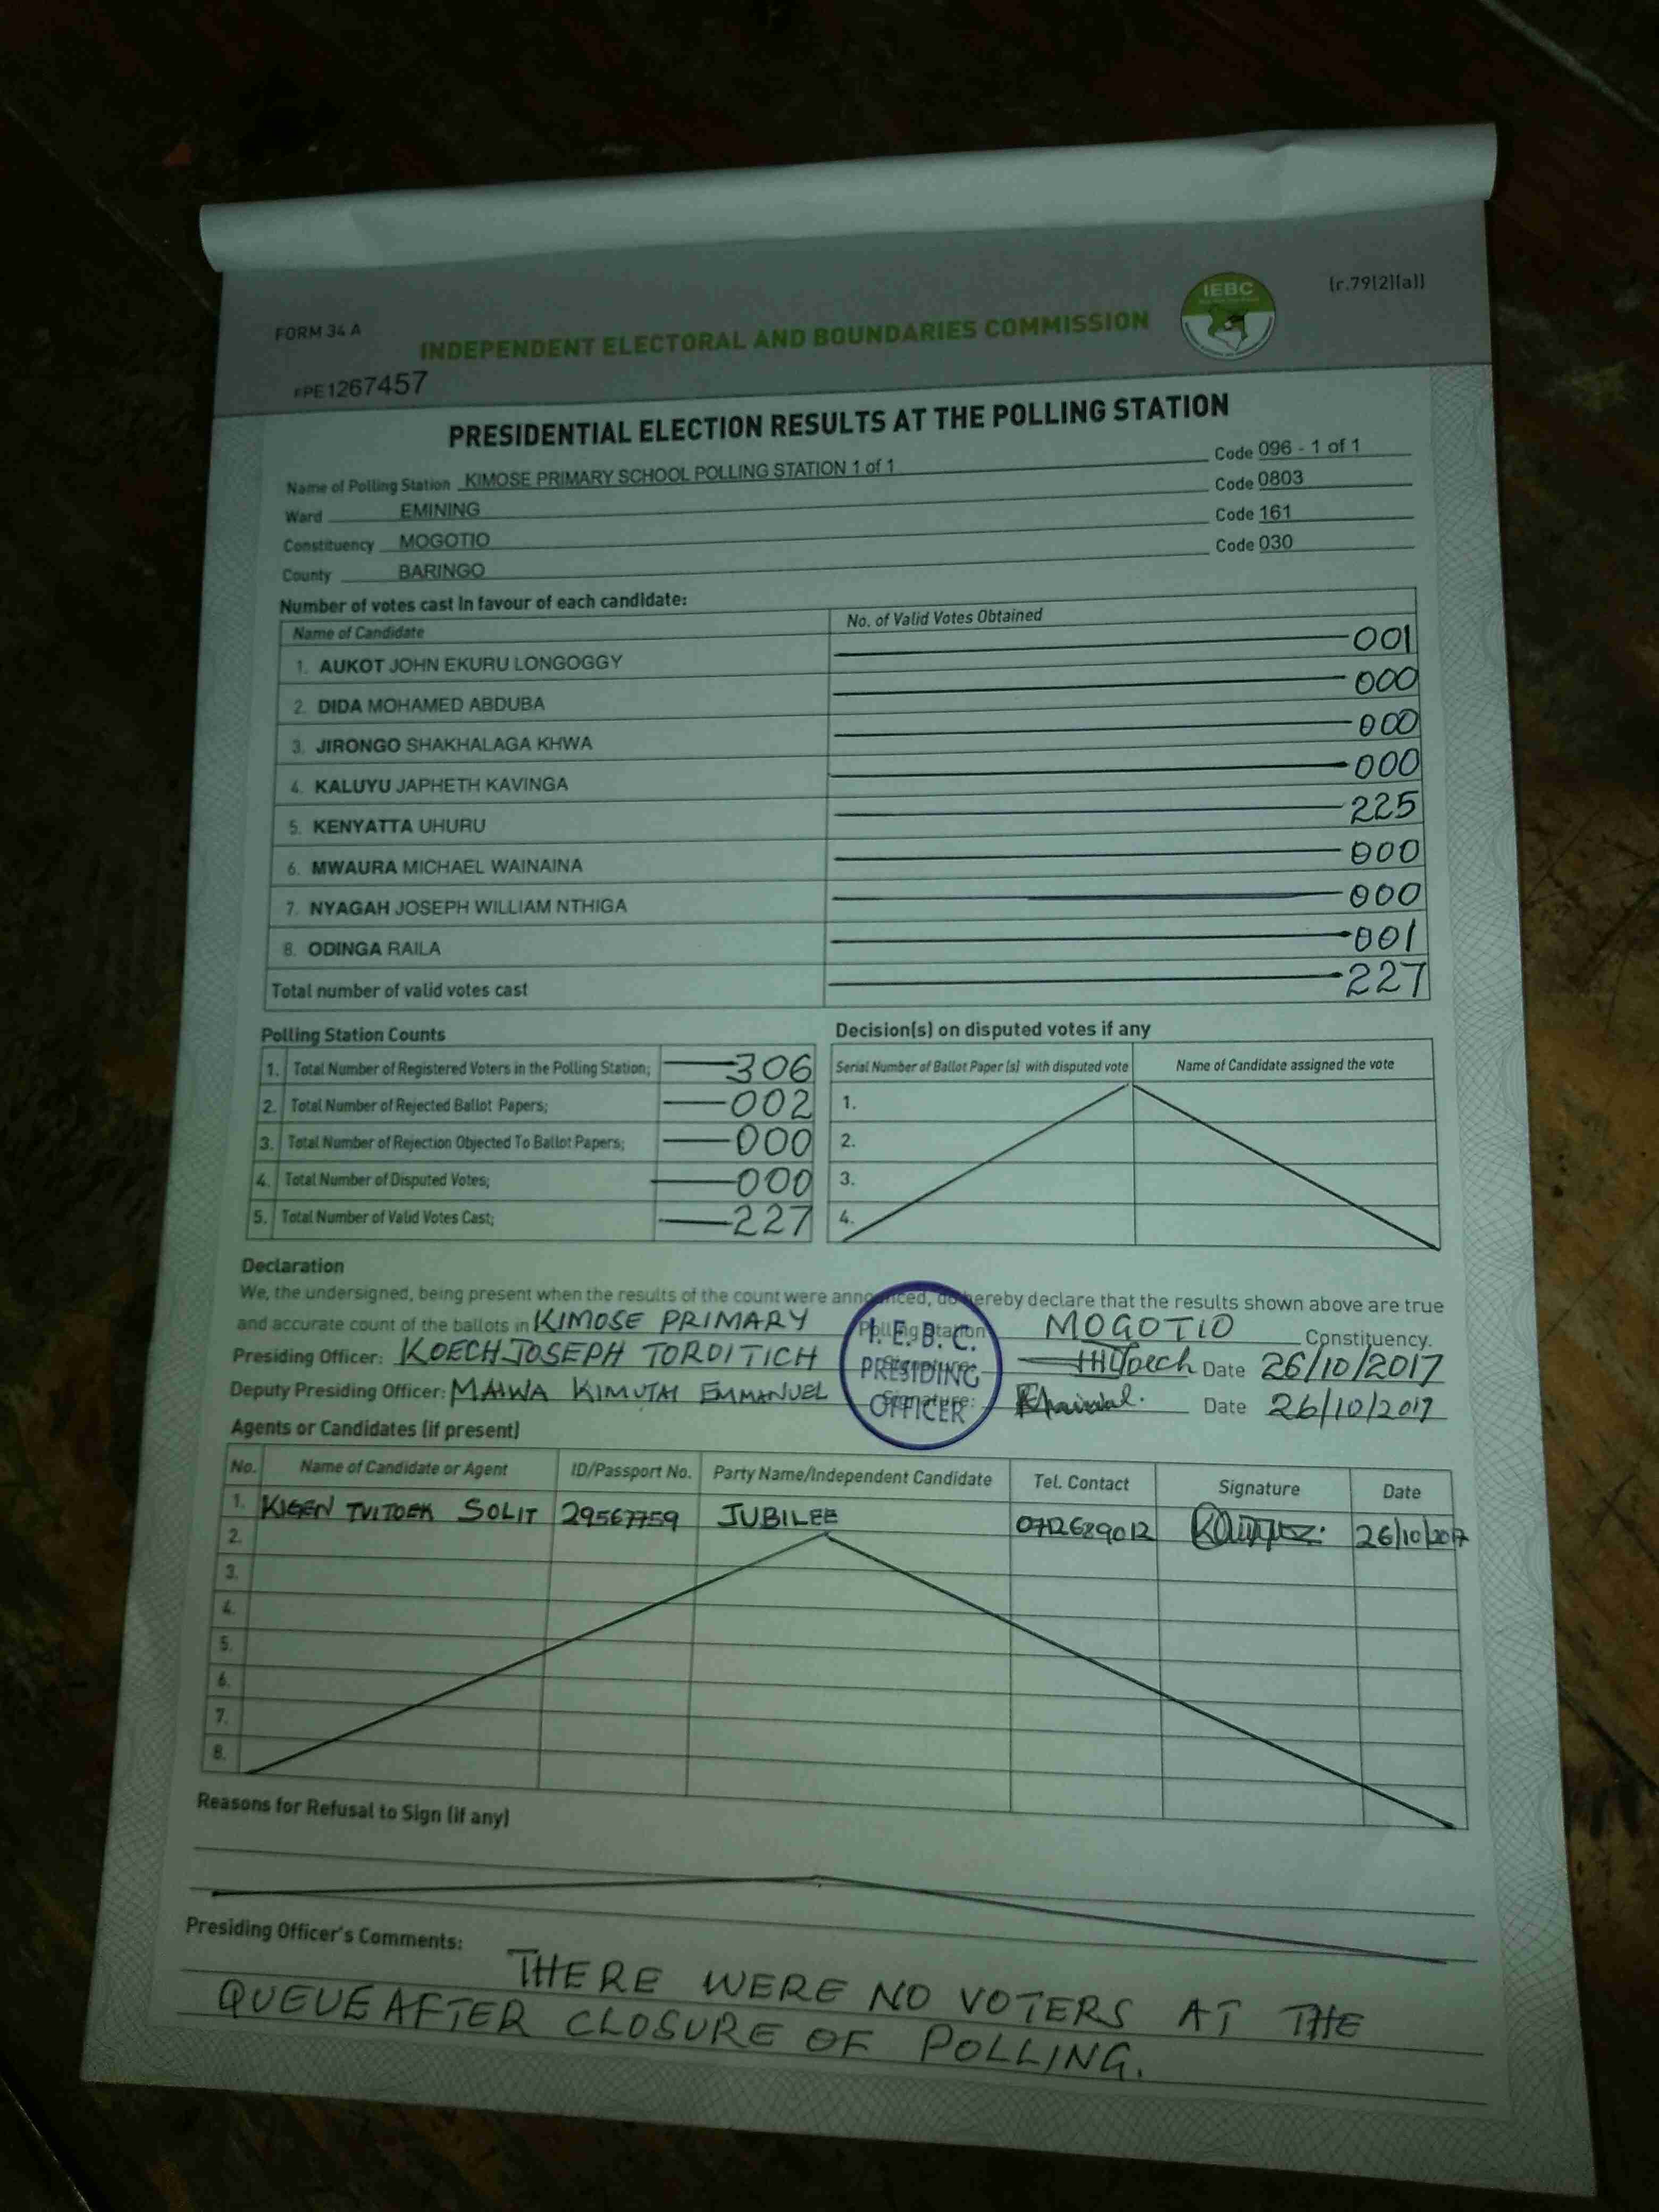 FORM 34 A
INDEPENDENT ELECTORAL AND BOUNDARIES COMMISSION
IEBC
(r.79(2)(a))
PE1267457
PRESIDENTIAL ELECTION RESULTS AT THE POLLING STATION
Name of Polling Station KIMOSE PRIMARY SCHOOL POLLING STATION 1 of 1 Code 096 - 1 of 1
Ward EMINING Code 0803
Constituency MOGOTIO Code 161
County BARINGO Code 030
Number of votes cast in favour of each candidate:
Name of Candidate No. of Valid Votes Obtained
1. AUKOT JOHN EKURU LONGOGGY 001
2. DIDA MOHAMED ABDUBA 000
3. JIRONGO SHAKHALAGA KHWA 000
4. KALUYU JAPHETH KAVINGA 000
5. KENYATTA UHURU 225
6. MWAURA MICHAEL WAINAINA 000
7. NYAGAH JOSEPH WILLIAM NTHIGA 000
8. ODINGA RAILA 001
Total number of valid votes cast 227
Polling Station Counts
1. Total Number of Registered Voters in the Polling Station; 306
2. Total Number of Rejected Ballot Papers; 002
3. Total Number of Rejection Objected To Ballot Papers; 000
4. Total Number of Disputed Votes; 000
5. Total Number of Valid Votes Cast; 227
Decision(s) on disputed votes if any
Serial Number of Ballot Paper (s) with disputed vote Name of Candidate assigned the vote
1.
2.
3.
4.
Declaration
We, the undersigned, being present when the results of the count were announced, do hereby declare that the results shown above are true
and accurate count of the ballots in KIMOSE PRIMARY Polling Station MOGOTIO Constituency.
Presiding Officer: KOECH JOSEPH TOROITICH Date 26/10/2017
Deputy Presiding Officer: MAIWA KIMUTAI EMMANUEL Signature: Date 26/10/2017
I.E.B.C.
PRESIDING
OFFICER
Agents or Candidates (if present)
No. Name of Candidate or Agent ID/Passport No. Party Name/Independent Candidate Tel. Contact Signature Date
1. KIGEN SOLIT 29567759 JUBILEE 0712689012 26/10/2017
2.
3.
4.
5.
6.
7.
8.
Reasons for Refusal to Sign (if any)
Presiding Officer's Comments: THERE WERE NO VOTERS AT THE
QUEUE AFTER CLOSURE OF POLLING.